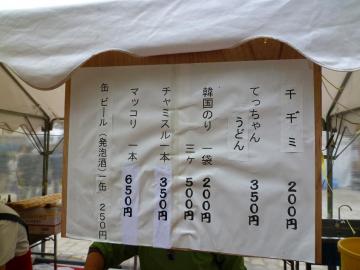 チヂミ 200円
てっちゃんうどん 350円
韓国のり 一袋 200円
三ヶ 500円
チャミスル一本 350円
マッコリ 一本 650円
缶ビール(発泡酒)一缶 250円